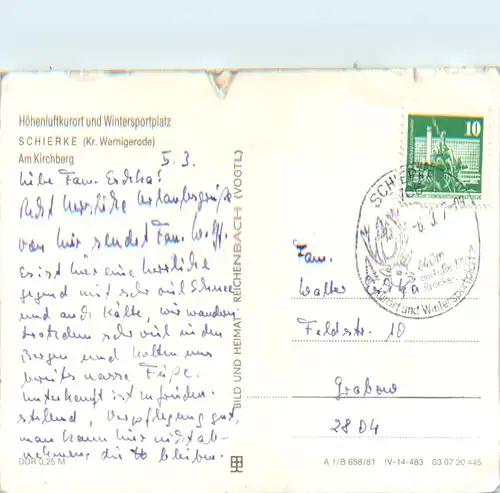 Höhenluftkurort und Wintersportplatz
SCHIERKE (Kr. Wernigerode)
Am Kirchberg
5.3.
Liebe Fam.
Recht herzliche Urlaubsgrüße
von hier sendet Fam. Wolff.
Es ist hier eine herrliche
Gegend mit sehr viel Schnee
und auch Kälte, wir wandern
trotzdem sehr viel in den
Bergen und holten uns
bereits nasse Füße.
Unterkunft ist zufrieden-
stellend, Verpflegung gut,
man kann hier nicht ab-
nehmen die bleiben.
DDR 0,25 M
BILD UND HEIMAT · REICHENBACH (VOGTL)
10
SCHIERKE
640m
Kurort und Wintersportplatz
Fam.
Walter
Feldstr. 10
Grabow
2804
A 1/B 658/81 IV-14-483 03 07 20 445